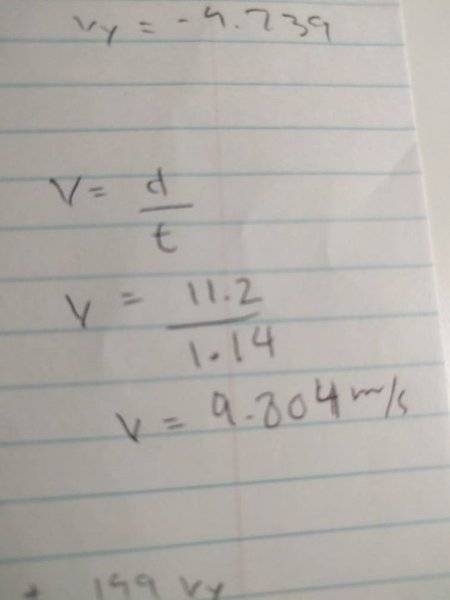 Vy = -9.739
V = d
t
V = 11.2
1.14
V = 9.804 m/s
199 Vy